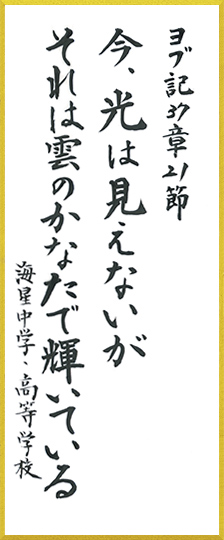 ヨブ記37章21節
今、光は見えないが
それは雲のかなたで輝いている
海星中学・高等学校